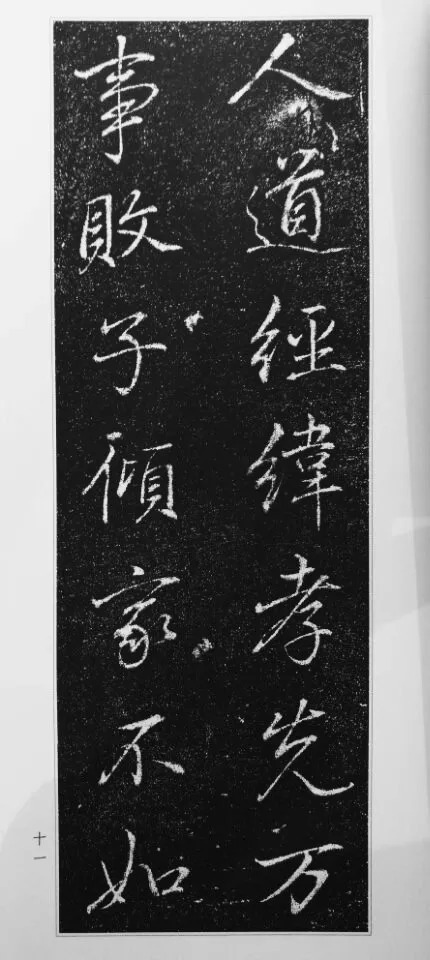 人道經緯孝先万
事敗子傾家不如
十一